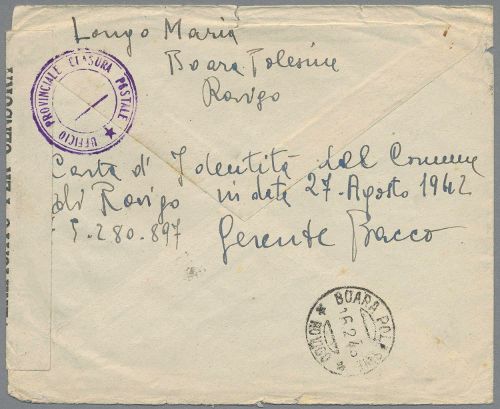 Longo Maria
Boara Polesine
Rovigo
UFFICIO PROVINCIALE CENSURA POSTALE
Carta d'Identità del Comune
di Rovigo in data 27 Agosto 1942
5.280.897 Gerente Bacco
BOARA POL
16.2.43
ROVIGO
PER CENSURA